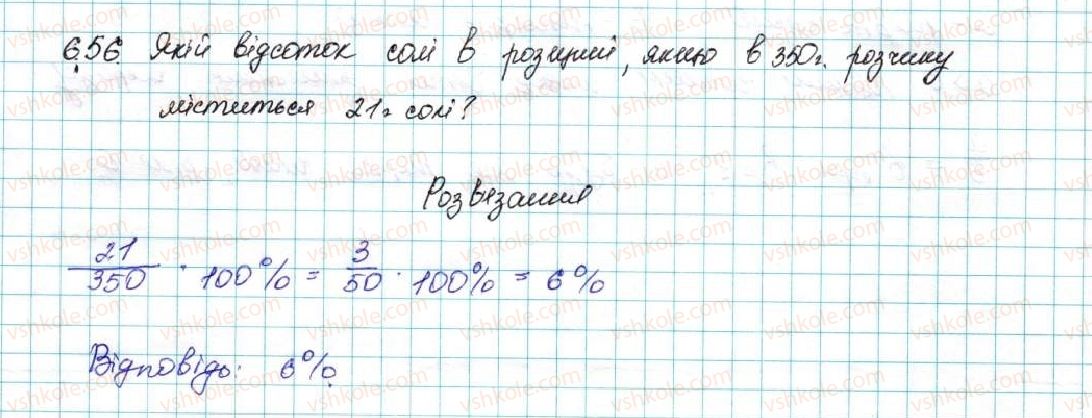 656. Який відсоток солі в розчині, якщо в 350 г. розчину
міститься 21 г солі?
Розв'язання
21/350 · 100% = 3/50 · 100% = 6%
Відповідь: 6%.